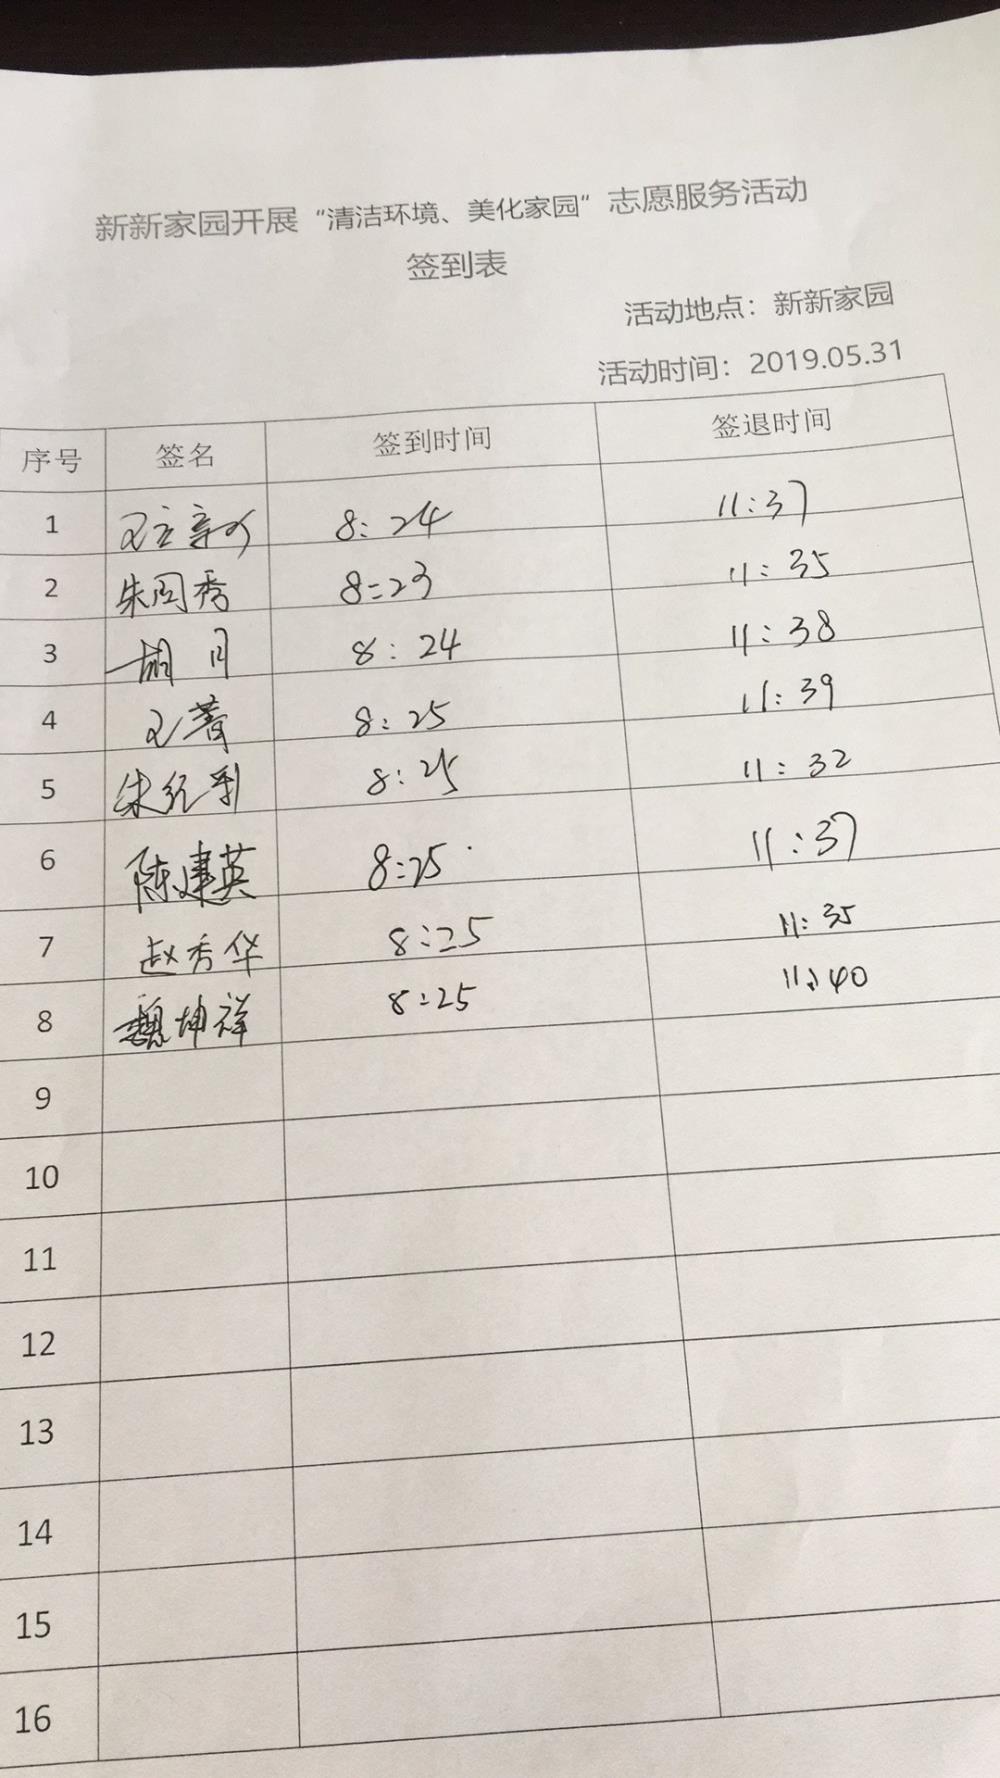 新新家园开展“清洁环境、美化家园”志愿服务活动
签到表
活动地点：新新家园
活动时间：2019.05.31
序号 签名 签到时间 签退时间
1 8:24 11:37
2 朱图秀 8:23 11:35
3 胡月 8:24 11:38
4 8:25 11:39
5 8:25 11:32
6 陈建英 8:25 11:37
7 赵秀华 8:25 11:35
8 魏坤祥 8:25 11:40
9
10
11
12
13
14
15
16